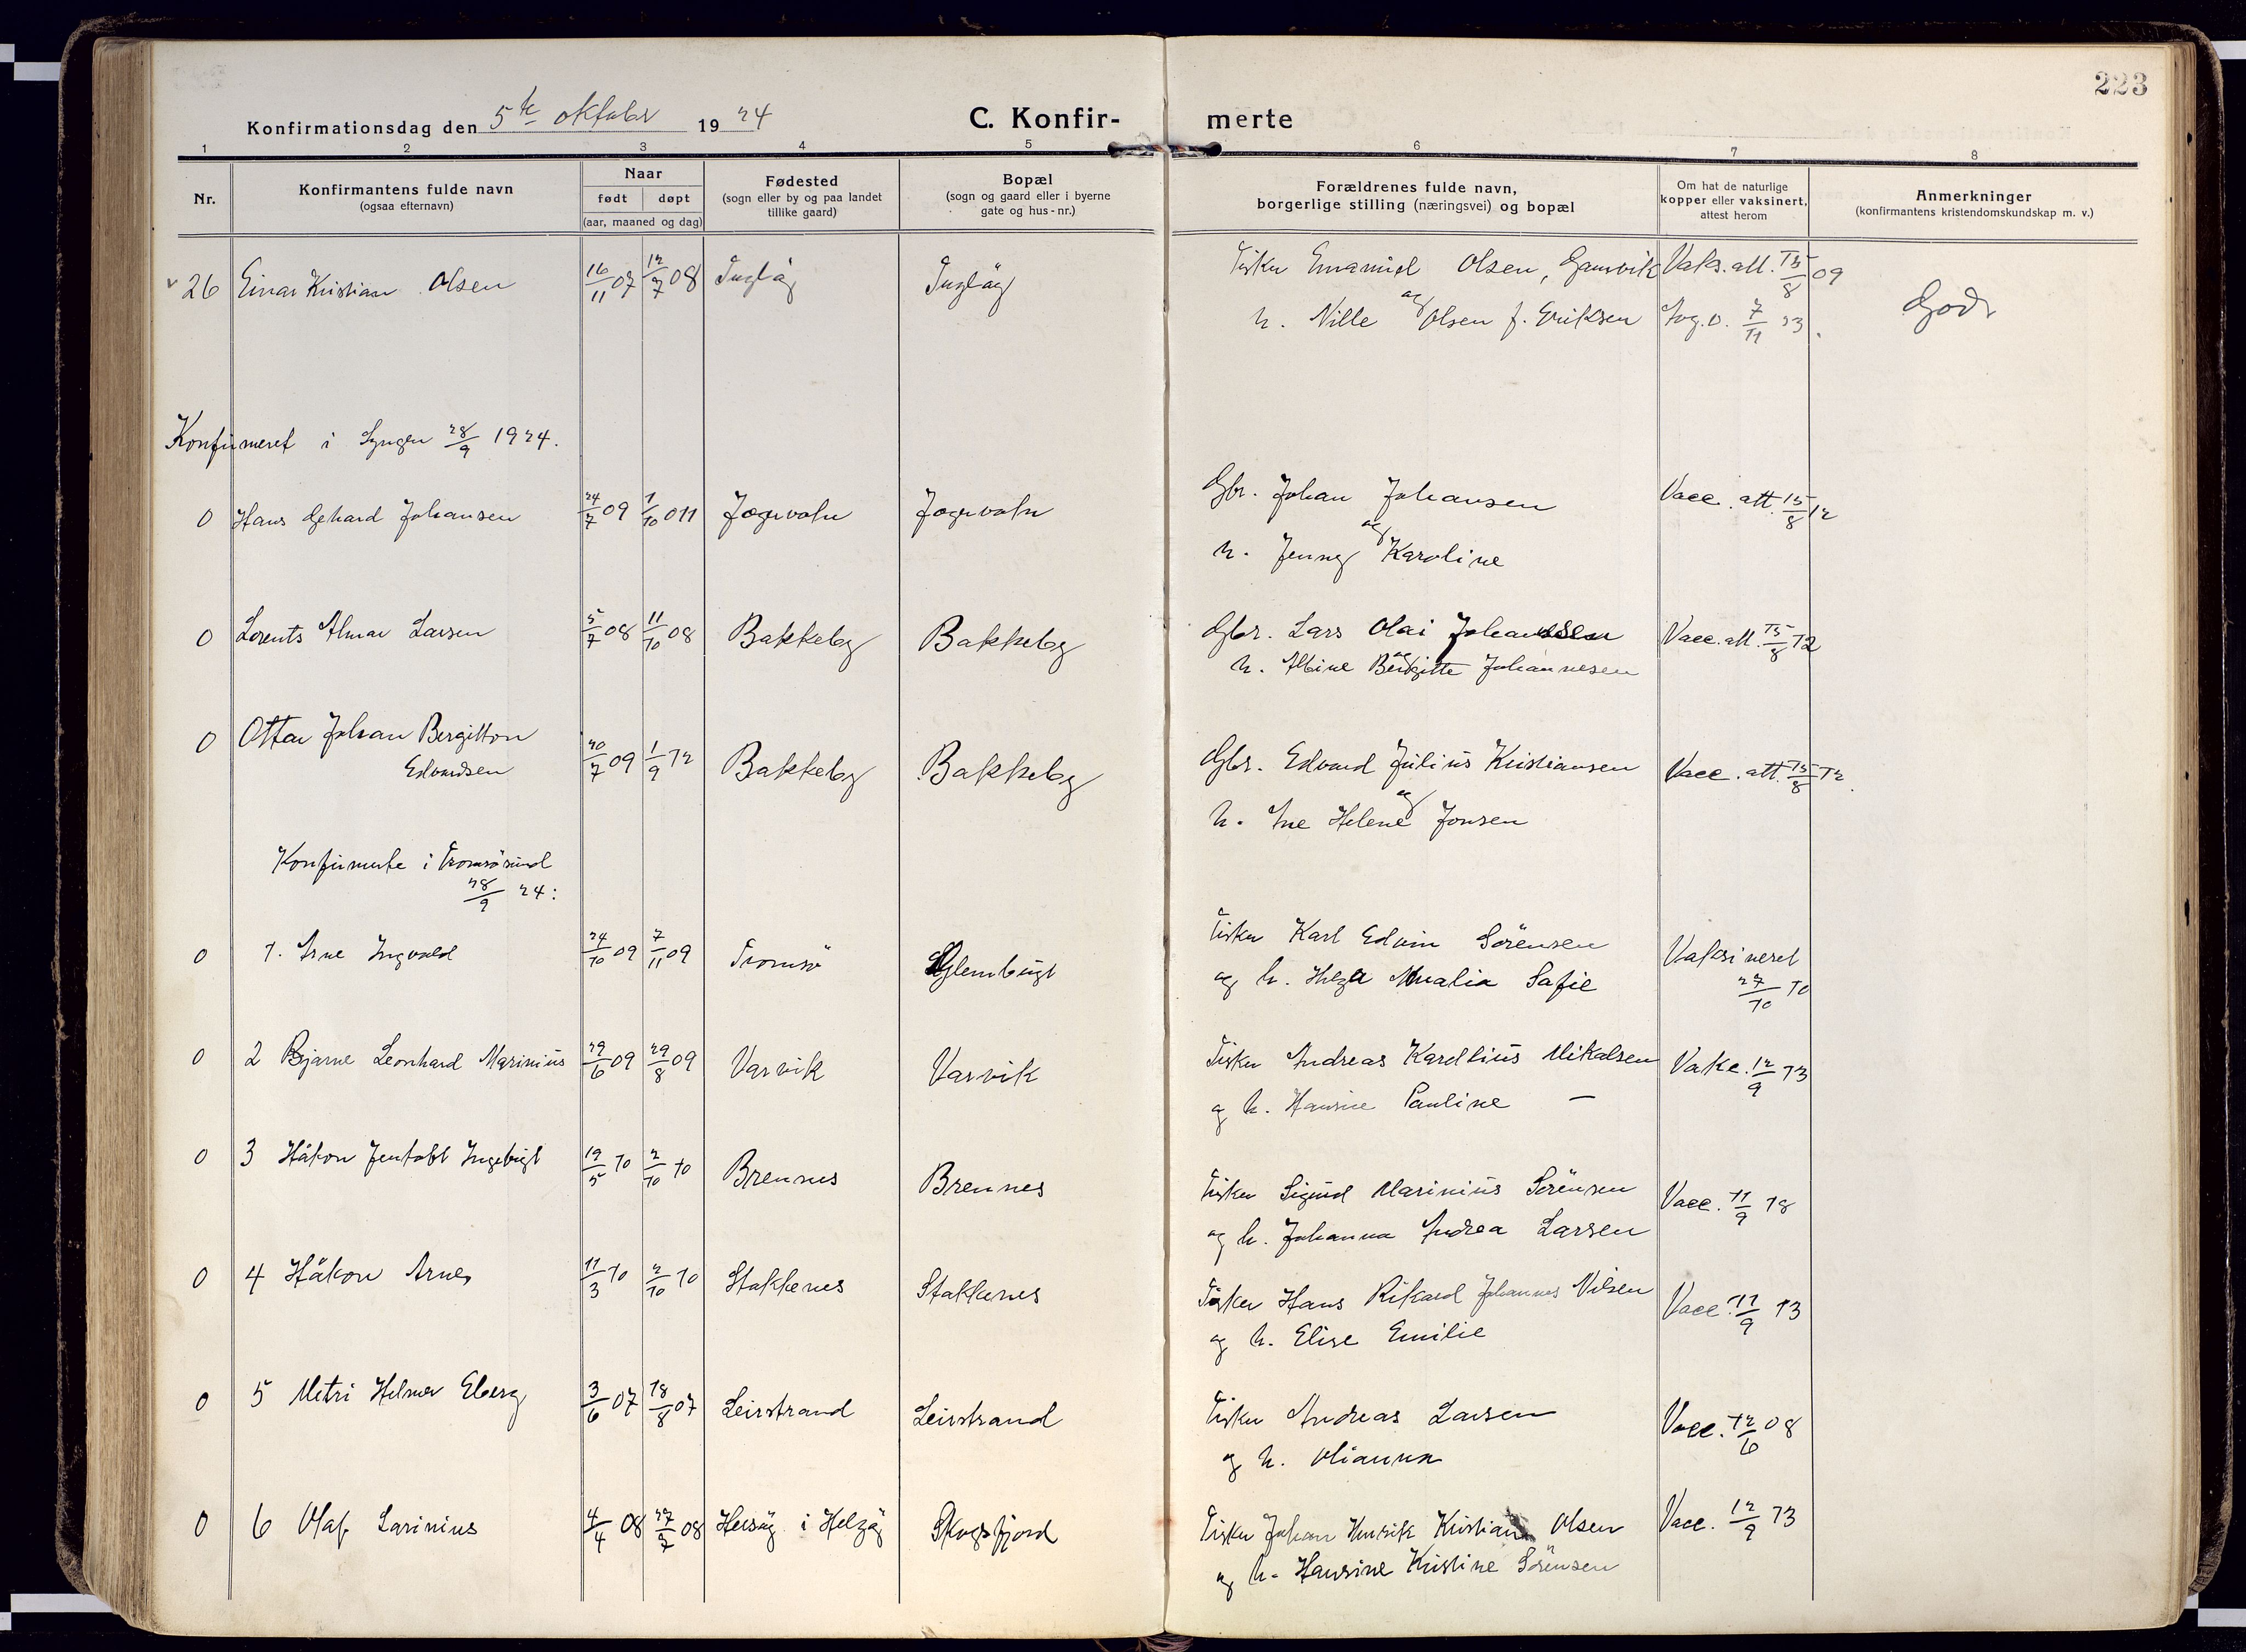 223
Konfirmationsdag den 5te oktober 1924
C. Konfirmerte
1 2 3 4 5 6 7 8
Nr.
Konfirmantens fulde navn
(ogsaa efternavn)
Naar
født døpt
(aar, maaned og dag)
Fødested
(sogn eller by og paa landet
tillike gaard)
Bopæl
(sogn og gaard eller i byerne
gate og hus-nr.)
Forældrenes fulde navn,
borgerlige stilling (næringsvei) og bopæl
Om hat de naturlige
kopper eller vaksinert,
attest herom
Anmerkninger
(konfirmantens kristendomskundskap m. v.)
26 Einar Kristian Olsen 16/11 07 12/7 08 Fisker Emanuel Olsen, Gamvik Vaks. att. 15/8 09
og
h. Nille Olsen f. Eriksen 7/11 23. God
Konfirmeret i Lyngen 28/9 1924.
0 Hans Gehard Johansen 24/7 09 1/10 011 Jægervatn Jægervatn Gbr. Johan Johansen Vacc. att. 15/8 12
og
h. Jenny Karoline
0 Lorents Almar Larsen 5/7 08 11/10 08 Bakkeby Bakkeby Gbr. Lars Olai Johansen Vacc. att. 15/8 12
og
h. Albine Bergitte Johannesen
0 Ottar Johan Bergitton 20/7 09 1/9 12 Bakkeby Bakkeby Gbr. Edvard Julius Kristiansen Vacc. att. 15/8 12.
Edvardsen
og
h. Ane Helene Jonsen
Konfirmerte i Tromsøsund
28/9 24:
0 1. Arne Ingvald 24/10 09 7/11 09 Tromsö Fisker Karl Edvin Sörensen Vaksineret
og h. Helga Amalia Safie 27/10 10
0 2 Bjarne Leonhard Marinius 29/6 09 29/8 09 Varvik Varvik Fisker Andreas Kardlius Mikalsen Vakc. 12/9 13
og h. Hansine Pauline —
0 3 Håkon Jentoft Ingebrigt 19/5 10 2/10 10 Brennes Brennes Fisker Sigurd Marinius Sörensen Vacc. 11/9 18
og h. Johanna Andrea Larsen
0 4 Håkon Arnes 11/3 10 2/10 10 Stakkenes Stakkenes Fisker Hans Rikard Johannes Nilsen Vacc. 11/9 13
og h. Elise Emilie
0 5 Metri Helmer Eberg 3/6 07 18/8 07 Leirstrand Leirstrand Fisker Andreas Larsen Vacc. 12/6 08
og h. Olianna
0 6 Olaf Larinius 4/4 08 27/7 08 i Helgöy Skogsfjord Fisker Johan Henrik Kristian Olsen Vacc. 12/9 13
og h. Hansine Kristine Sörensen